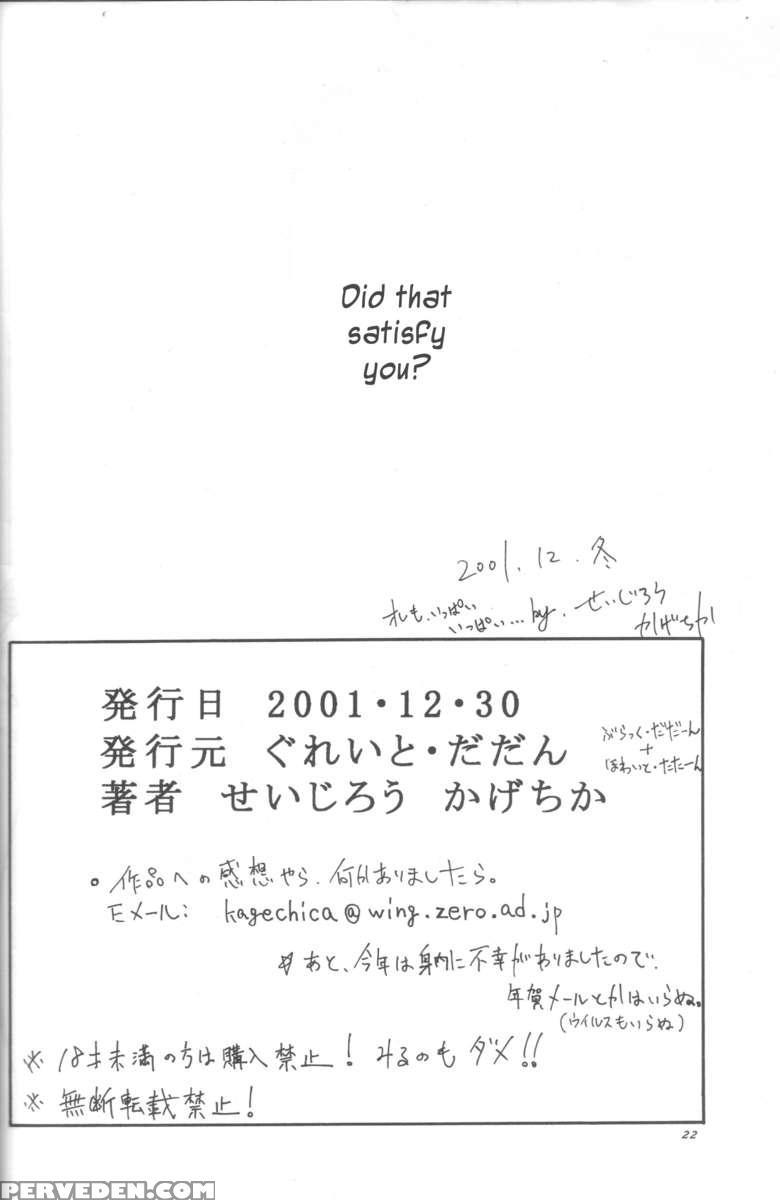 Did that
satisfy
you?
2001.12.冬
オレも、いっぱい
いっぱい… by. せいじろう
かげちか
発行日 2001・12・30
発行元 ぐれいと・だだん
著者 せいじろう かげちか
ぶらっく・だだーん
+
ほわいと・だだーん
・作品への感想やら、何かありましたら。
Eメール: kagechica@wing.zero.ad.jp
#あと、今年は身内に不幸がありましたので、
年賀メールとかはいらぬ。
(ウイルスもいらぬ)
※18才未満の方は購入禁止! みるのもダメ!!
※無断転載禁止!
22
PERVEDEN.COM